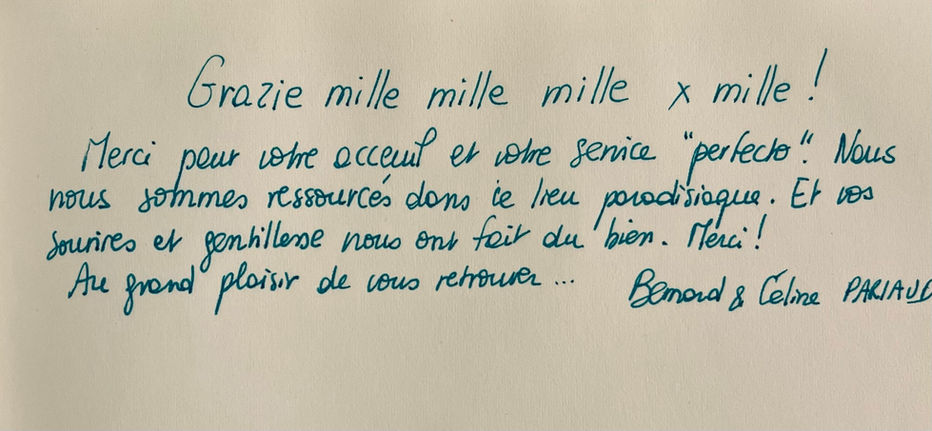 Grazie mille mille mille x mille !
Merci pour votre acceuil et votre service "perfecto". Nous
nous sommes ressourcés dans ce lieu paradisiaque. Et vos
sourires et gentillesse nous ont fait du bien. Merci !
Au grand plaisir de vous retrouver ...
Bernard & Céline PARIAUD